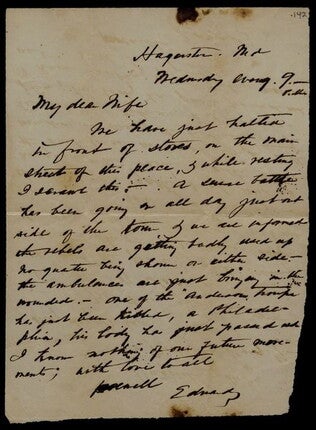 -142
Hagerstn. Md
Wednesday eveng. 9.—
My dear Wife
We have just halted
in front of stores, on the main
street of this place, & while resting
I scrawl this;— A sense battle
has been going on all day just out
side of the town, & we are informed
the rebels are getting badly used up
no quarter being shown on either side.—
the ambulances are just bringing in the
wounded.— one of the Anderson troop
has just been killed, a Philadel-
phian, his body has just passed and
I know nothing of our future move-
ments; with love to all
farewell
Edward